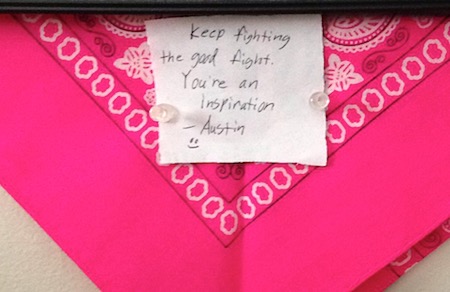 Keep fighting
the good fight.
You're an
Inspiration
- Austin